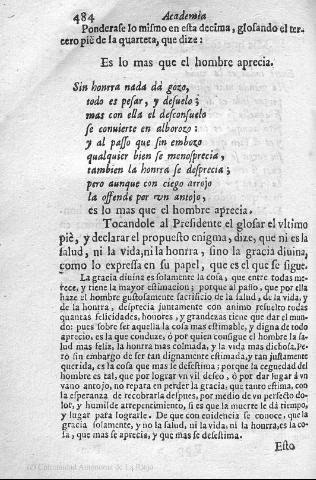 484 Academia
Ponderase lo mismo en esta decima, glosando el ter-
cero piè de la quarteta, que dize:
Es lo mas que el hombre aprecia.
Sin honrra nada dá gozo,
todo es pesar, y desuelo;
mas con ella el desconsuelo
se conuierte en alborozo:
y al passo que sin embozo
qualquier bien se menosprecia,
tambien la honrra se desprecia;
pero aunque con ciego arrojo
la offende por vn antojo,
es lo mas que el hombre aprecia.
Tocandole al Presidente el glosar el vltimo
piè, y declarar el propuesto enigma, dize, que ni es la
salud, ni la vida, ni la honrra, sino la gracia diuina,
como lo expressa en su papel, que es el que se sigue.
La gracia diuina es solamente la cosa, que entre todas me-
rece, y tiene la mayor estimacion; porque al passo, que por ella
haze el hombre gustosamente sacrificio de la salud, de la vida, y
de la honrra, desprecia juntamente con animo resuelto todas
quantas felicidades, honores, y grandezas tiene que dar el mun-
do: pues sobre ser aquella la cosa mas estimable, y digna de todo
aprecio, es la que conduze, ò por quien consigue el hombre la sa-
lud mas feliz, la honrra mas colmada, y la vida mas dichosa. Pe-
rò sin embargo de ser tan dignamente estimada, y tan justamente
querida, es la cosa que mas se desestima: porque la ceguedad del
hombre es tal, que por lograr vn vil deseo, ò por dar lugar à vn
vano antojo, no repara en perder la gracia, que tanto estima, con
la esperanza de recobrarla despues, por medio de vn perfecto do-
lor, y humilde arrepentimiento, si es que la muerte le dá tiempo,
y lugar para lograrle. De que con euidencia se conoce, que la
gracia solamente, y no la salud, ni la vida, ni la honrra, es la co-
sa, que mas se aprecia, y que mas se desestima.
Esto
(c) Comunidad Autónoma de La Rioja